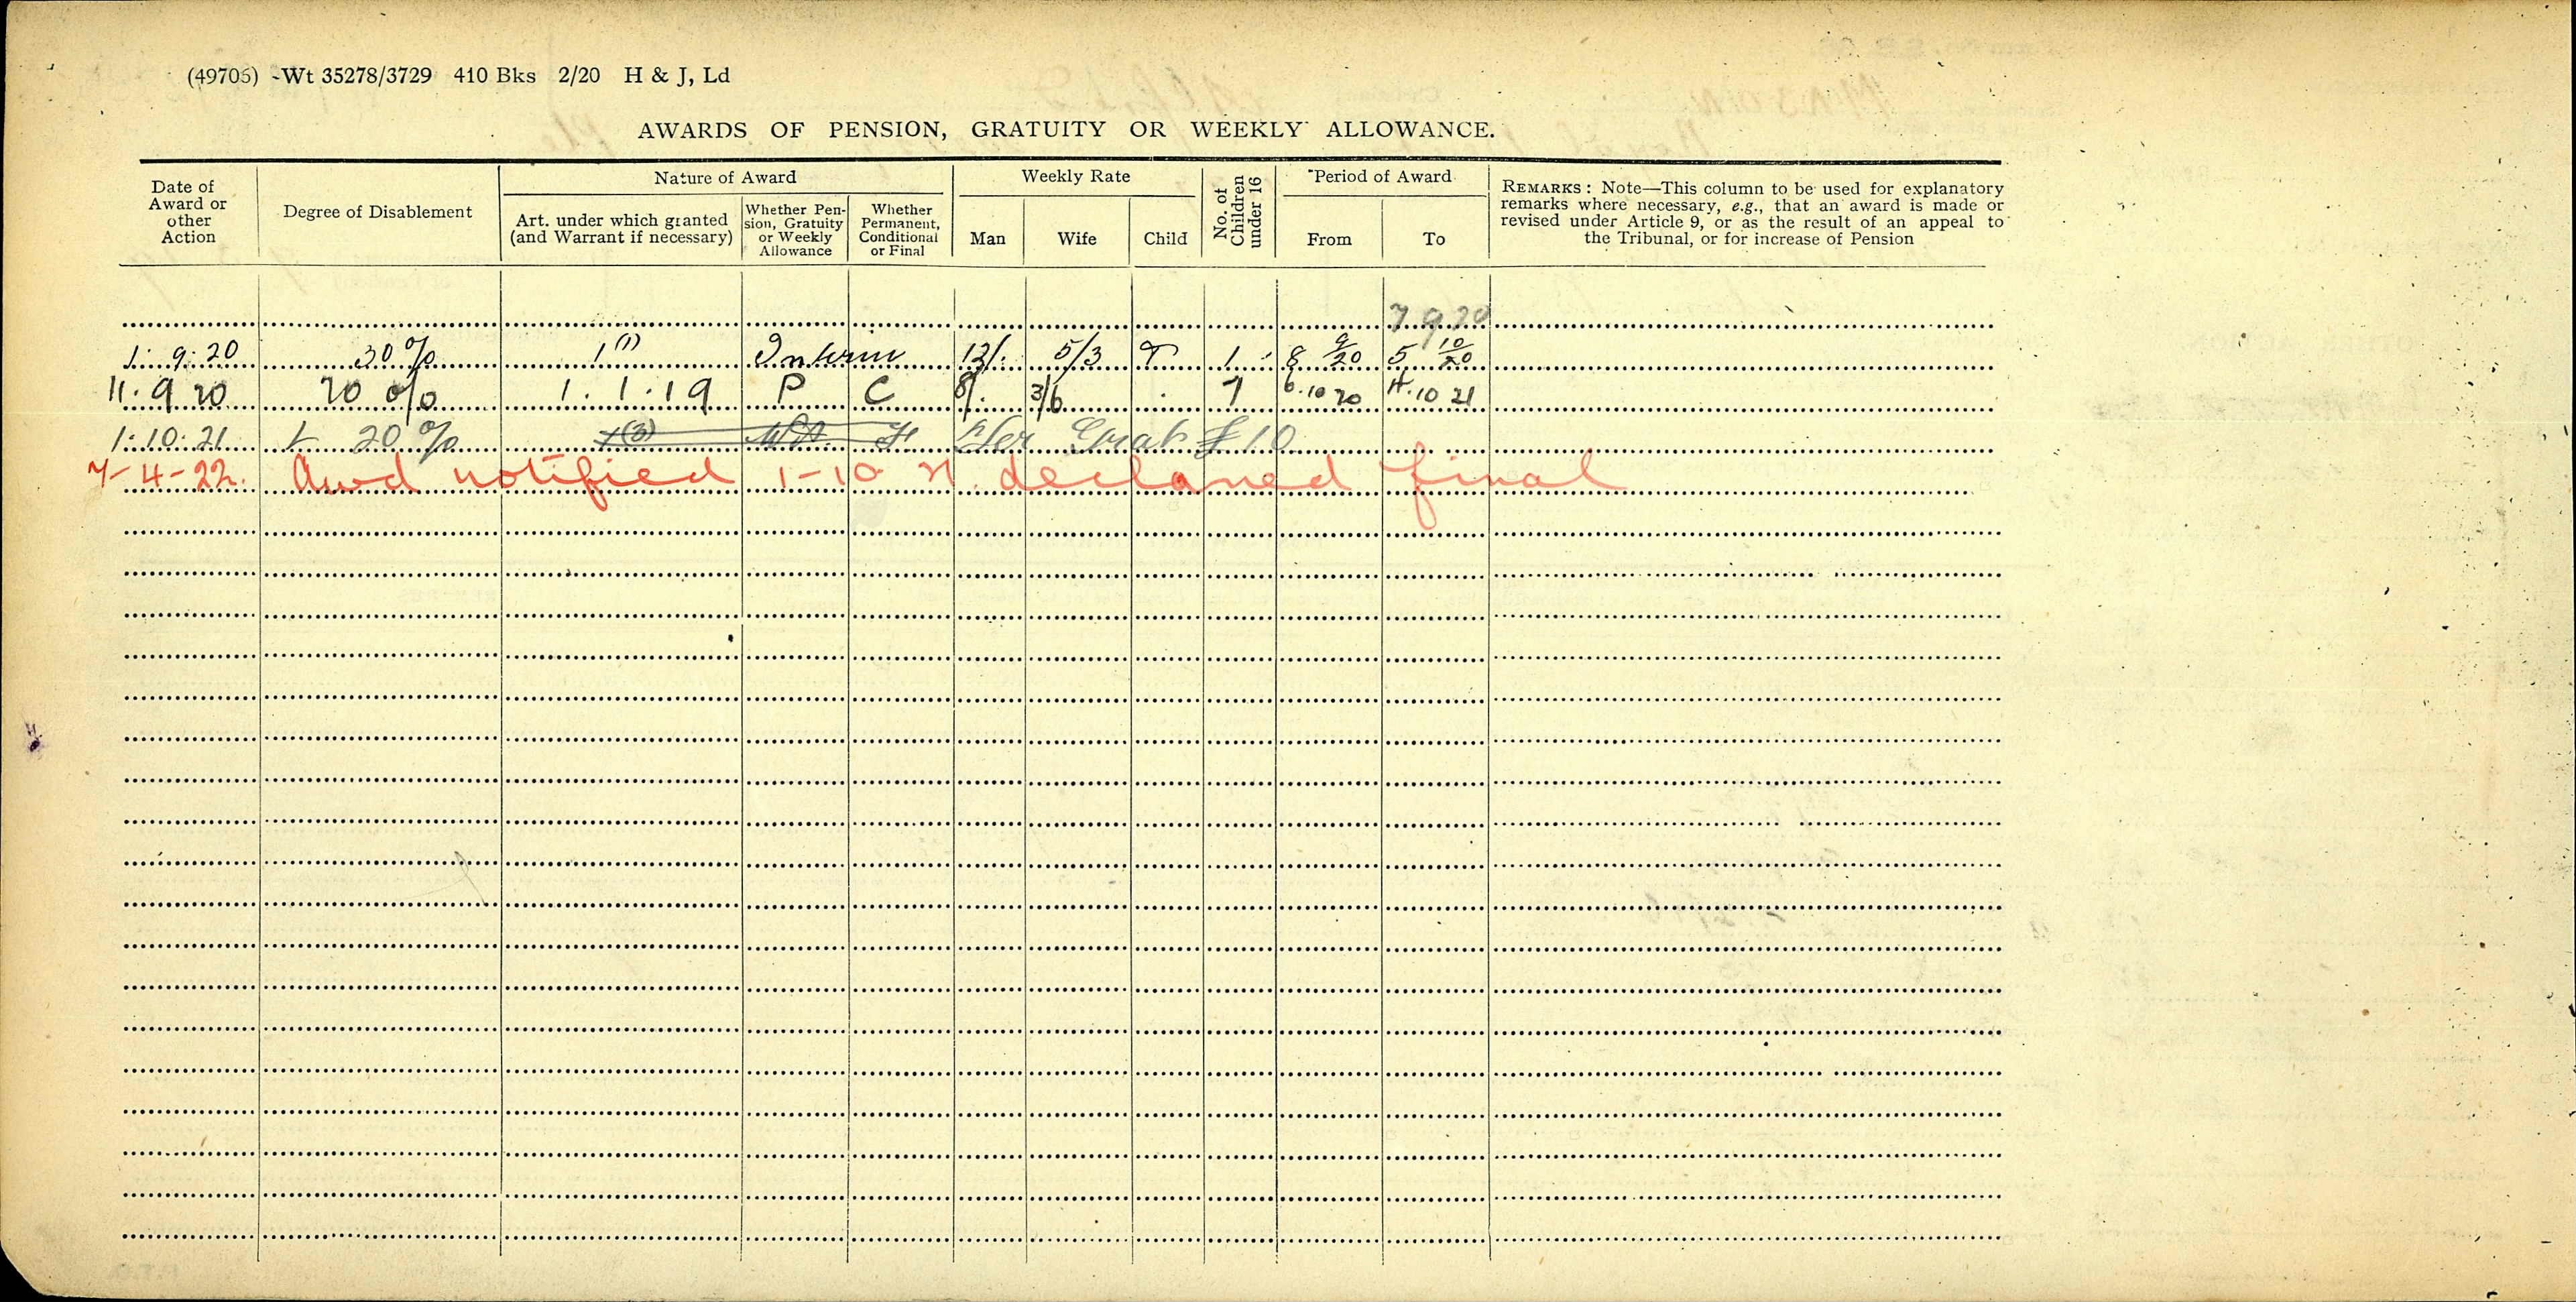 (49706) Wt 35278/3729 410 Bks 2/20 H & J, Ld
AWARDS OF PENSION, GRATUITY OR WEEKLY ALLOWANCE.
Date of
Award or
other
Action
Degree of Disablement
Nature of Award
Art. under which granted
(and Warrant if necessary)
Whether Pen-
sion, Gratuity
or Weekly
Allowance
Whether
Permanent,
Conditional
or Final
Weekly Rate
Man
Wife
Child
No. of
Children
under 16
Period of Award
From
To
REMARKS: Note—This column to be used for explanatory
remarks where necessary, e.g., that an award is made or
revised under Article 9, or as the result of an appeal to
the Tribunal, or for increase of Pension
7 9 20
1. 9. 20 30 % 1 (1) Interim 12/. 5/3 1 8 9/20 5 10/20
11. 9 20 20 o/o 1. 1. 19 P C 8/. 3/6 6.10 20 4.10 21
1. 10. 21 20 % (3) F Grat £10
7-4-22. Awd notified 1-10 21. declared final